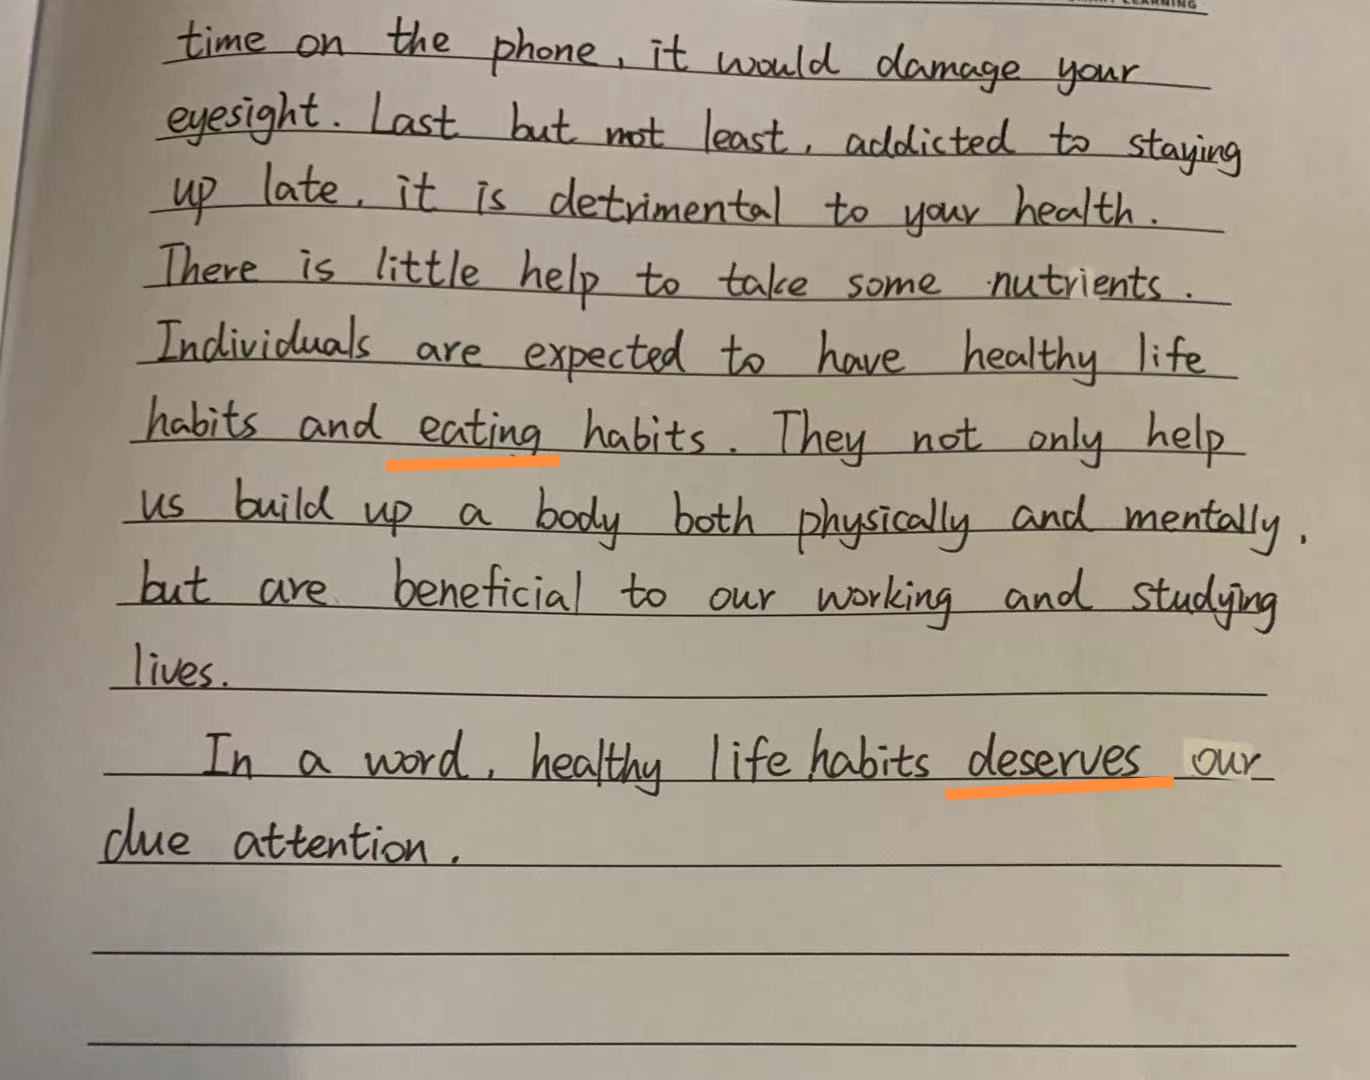 LEARNING
time on the phone, it would damage your
eyesight. Last but not least, addicted to staying
up late, it is detrimental to your health.
There is little help to take some nutrients.
Individuals are expected to have healthy life
habits and eating habits. They not only help
us build up a body both physically and mentally,
but are beneficial to our working and studying
lives.
In a word, healthy life habits deserves our
due attention.